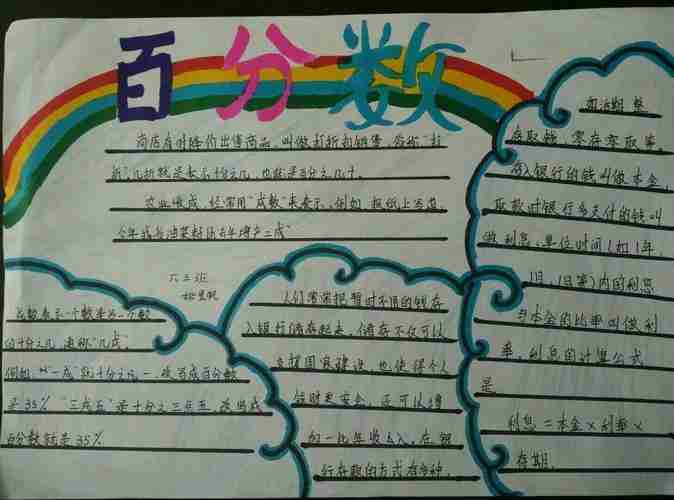 百分数
商店有时降价出售商品，叫做打折扣销售，俗称"打
折"，几折就是表示十分之几，也就是百分之几十。
农业收成，经常用"成数"来表示。例如，报纸上写道：
今年我省油菜籽比去年增产二成"
六三班
成数表示一个数是另一个数
的十分之几，通称"几成"
例如"一成"就十分之一，改写成百分数
是35% "三成五"是十分之三点五，改写成
百分数就是35%
人们常常把暂时不用的钱存
入银行储存起来，储存不仅可以
支援国家建设，也使得个人
钱财更安全，还可以增
加一些年收入，在银
行存取的方式有多种，
如活期、整
存取钱，零存零取等，
存入银行的钱叫做本金，
取款时银行多支付的钱叫
做利息，单位时间（如1年，
1月，1日等）内的利息
与本金的比率叫做利
率，利息的计算公式
是
利息＝本金×利率×
存期.